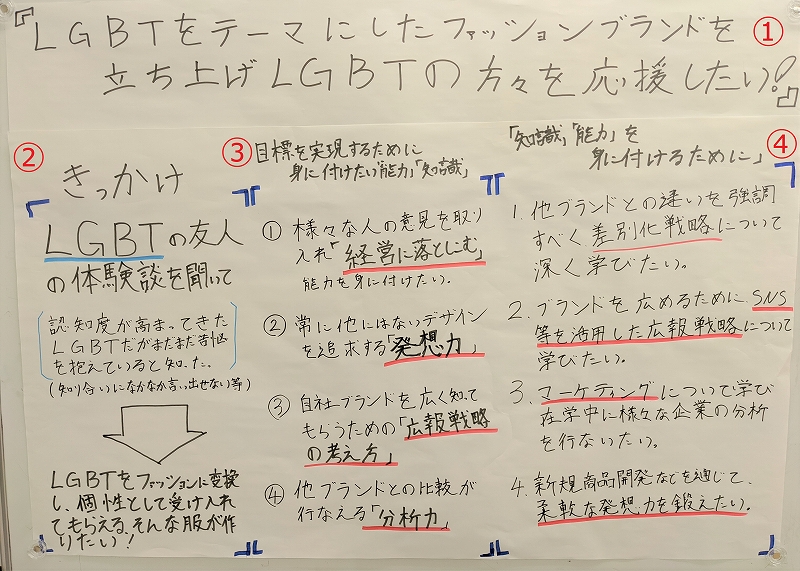 『LGBTをテーマにしたファッションブランドを ①
立ち上げLGBTの方々を応援したい!』
②
きっかけ
LGBTの友人
の体験談を聞いて
認知度が高まってきた
LGBTだがまだまだ苦悩
を抱えていると知った。
(知り合いになかなか言い出せない等)
LGBTをファッションに変換
し、個性として受け入れ
てもらえる、そんな服が作
りたい!
③
目標を実現するために
身に付けたい「能力」「知識」
① 様々な人の意見を取り
入れ「経営に落としこむ」
能力を身に付けたい。
② 常に他にはないデザイン
を追求する「発想力」
③ 自社ブランドを広く知って
もらうための「広報戦略
の考え方」
④ 他ブランドとの比較が
行なえる「分析力」
④
「知識」「能力」を
身に付けるために」
1. 他ブランドとの違いを強調
すべく差別化戦略について
深く学びたい。
2. ブランドを広めるために SNS
等を活用した広報戦略について
学びたい。
3. マーケティングについて学び
在学中に様々な企業の分析
を行ないたい。
4. 新規商品開発などを通じて、
柔軟な発想力を鍛えたい。